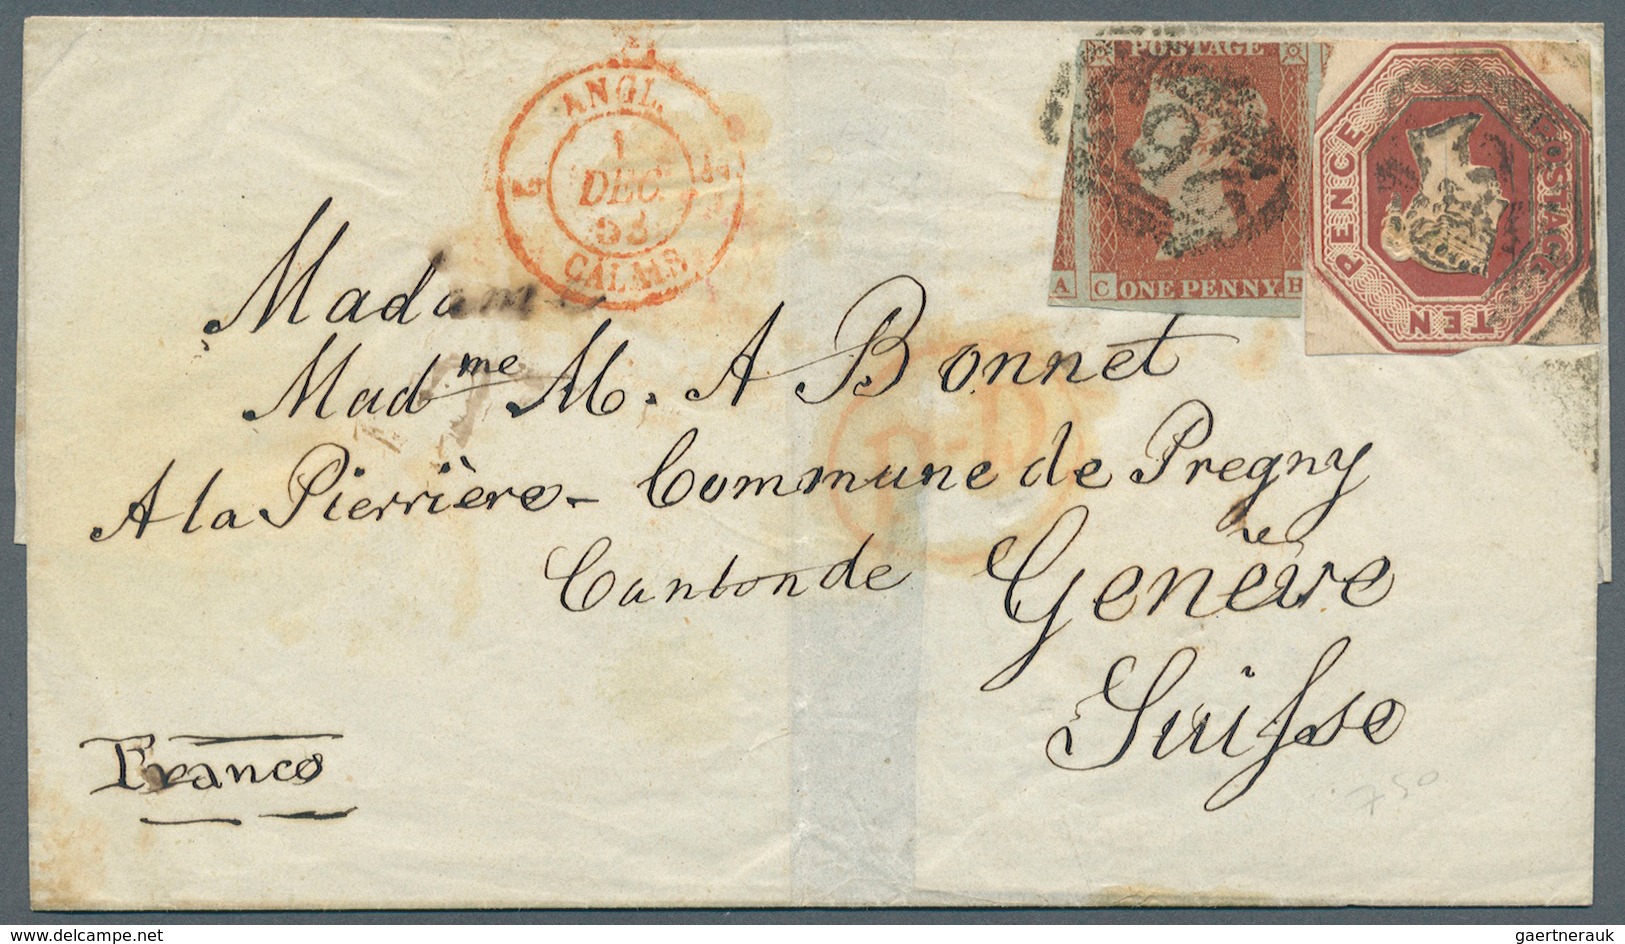 POSTAGE
A C ONE PENNY. B
POSTAGE
TEN PENCE
ANGL.
1
DEC.
53
CALAIS
Madame
Madme M. A Bonnet
A la Pierrière - Commune de Pregny
Canton de Genève
Suisse
Franco
P-D
750
www.delcampe.net
gaertnerauk